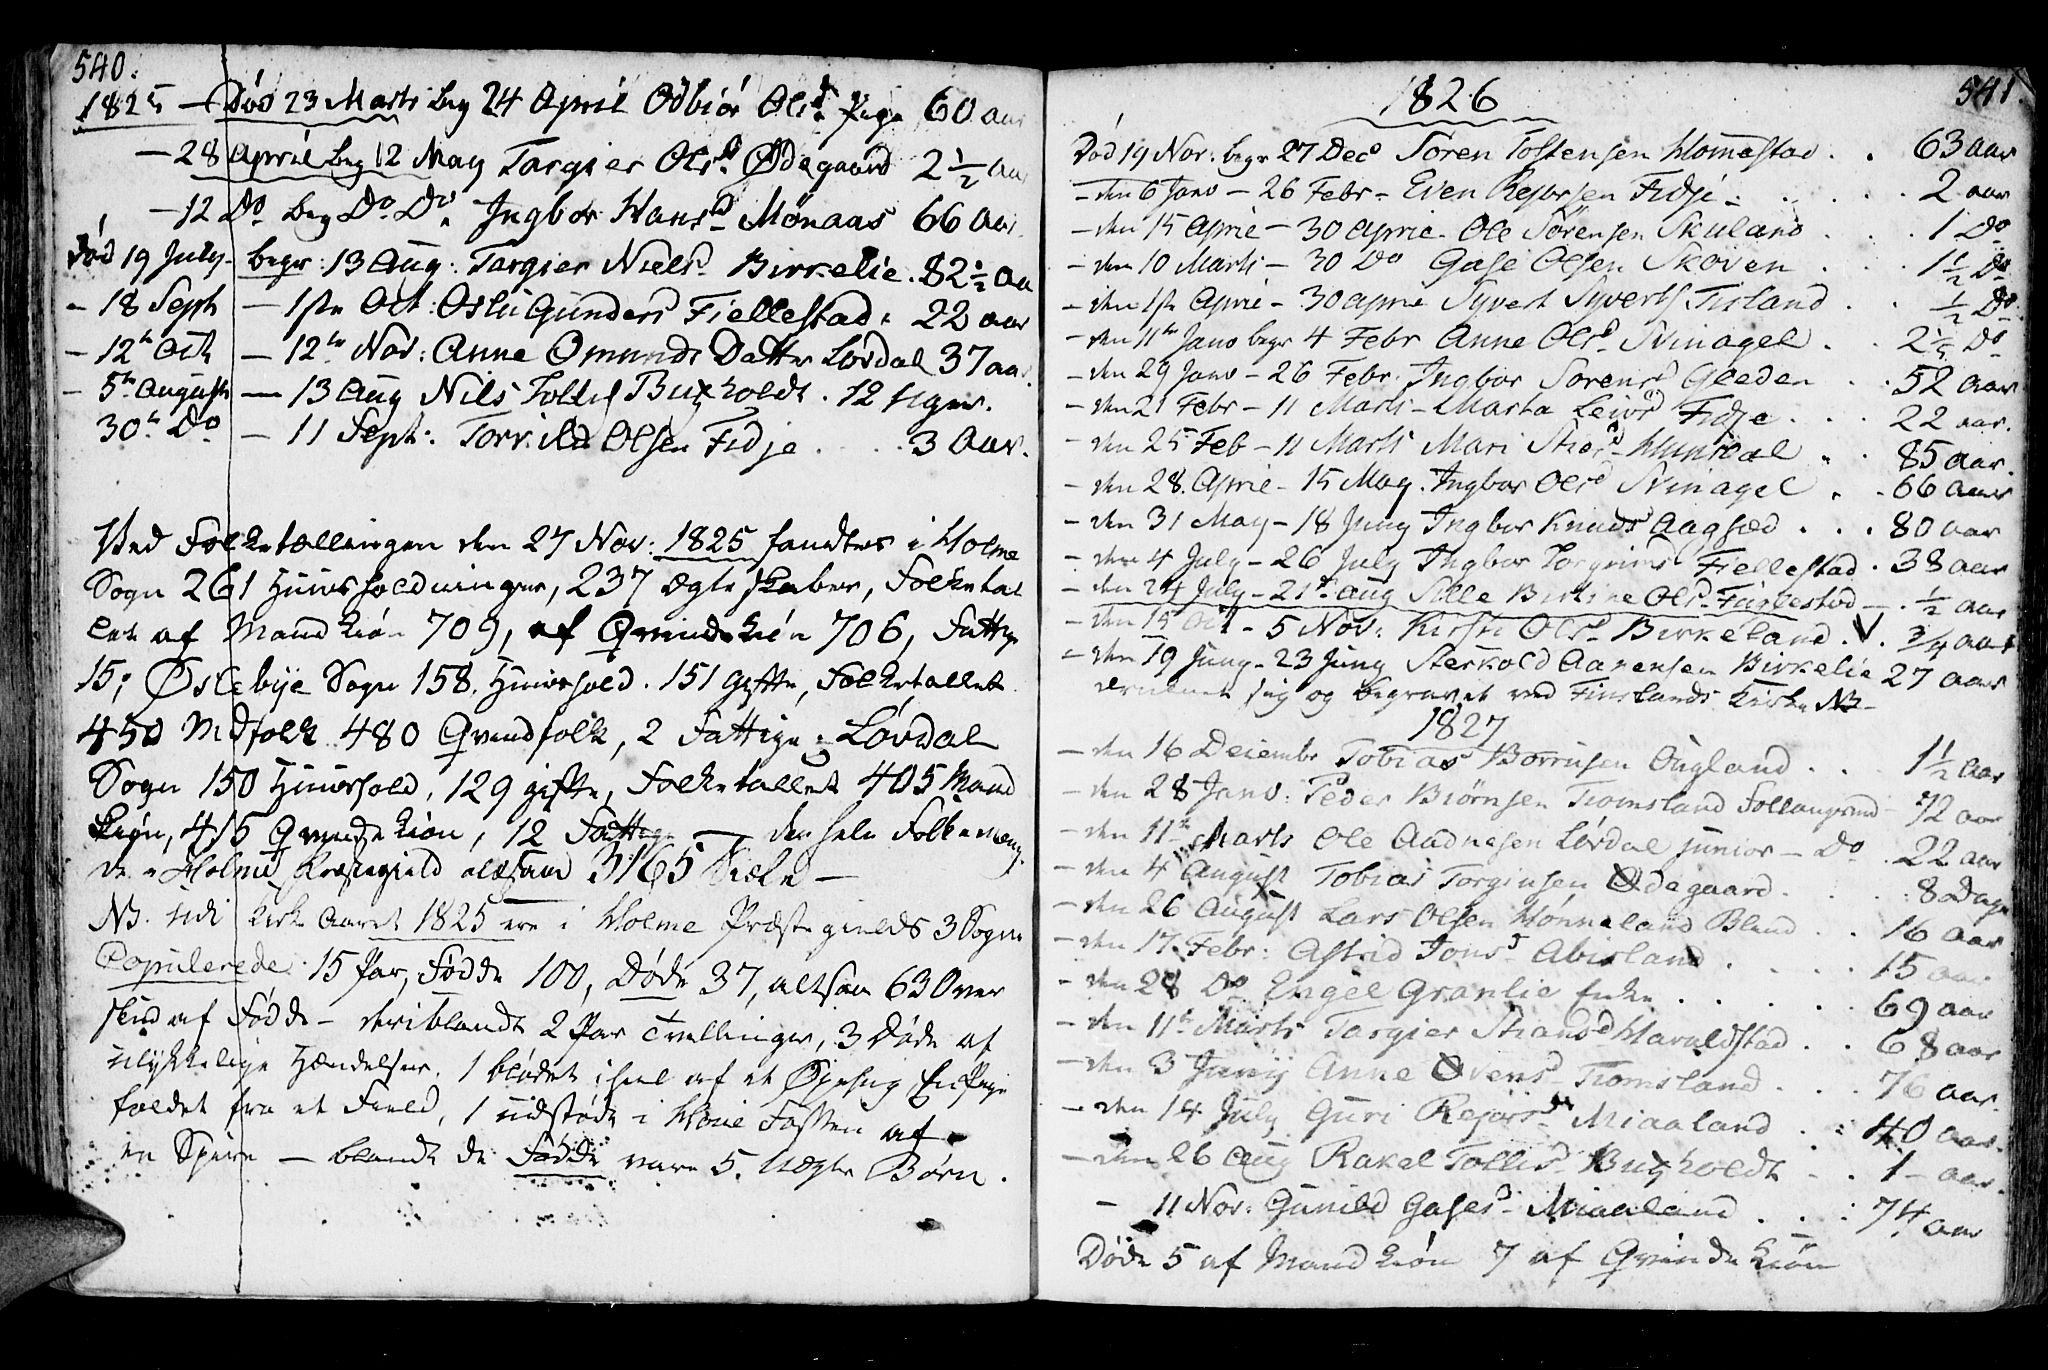 540.
1825 — Død 23 Marts beg 24 April Odbiør Olsd. Pige 60 aar
— 28 April beg 12 May Targier Olsd Ødegaard 2½ Aar
— 12 Do beg Do Do Ingbor Hansd Mønaas 66 Aar
Død 19 July begr: 13 Aug: Targier Nielsd Birkelie. 82½ Aa
- 18 Sept — 1ste Oct: Osl Gunders Fiellestad. 22 aar
- 12te Oct — 12te Nov: Anne Omunds Datter Lordal 37 aar.
- 5te August — 13 Aug Nils Tollis Buchholdt. 12 Uger.
30te Do — 11 Sept: Torkild Olsen Fidje . . . 3 Aar.
Ved Folketællingen den 27 Nov: 1825 fandtes i Holme
Sogn 261 Huusholdninger, 237 Ægteskaber, Folketal
let af Mandkiøn 709, af Qvindekiøn 706, Fattige
15; Øslebye Sogn 158. Huushold. 151 gifte, Folketallet
450 Mdfolk 480 Qvindfolk, 2 Fattige; Løvdal
Sogn 150 Huushold, 129 gifte, Folketallet 405 Mand
kiøn, 415 Qvindekiøn, 12 Fattige — den hele Folkemæng
de i Holme Præstegield altsaa 3165 Siæle —
NB. Udi Kirke Aaret 1825 ere i Holme Præstegields 3 Sogne
Copulerede 15 Par, Fødde 100, Døde 37, altsaa 63 Over
skud af Fødde - deriblandt 2 Par Tvillinger, 3 Døde af
ulykkelige Hændelser. 1 blødet ihiel af et Øxehug En Pige
faldet fra et Field, 1 udstødt i Høie Fossen af
en Spire — blandt de Fødde vare 5. Uægte Børn.
541.
1826
Død 19 Nov: begr 27 Dec Søren Tostensen Homestad . . 63 aar
- den 6 Janv — 26 Febr - Even Rejersen Fidje . . 2 aar
- den 15 April — 30 April - Ole Sørensen Skuland . . . 1 Do
- den 10 Marts — 30 Do Gase Olsen Skoven . . . 1½ Do
- den 1ste April - 30 april Syvert Syverts Tisland . . ½ Do
- den 11te Janv begr 4 Febr Anne Olsd Svinagel . . 2½ Do
- den 29 Janv — 26 Febr Ingbor Sorensd Gleden . . 52 aar
- den 21 Febr — 11 Marts - Marta Leivsd Fidje . . . 22 aar.
- den 25 Feb — 11 Marts Mari Stiesd Hunsdal . . 85 aar.
- den 28. April - 15 May. Ingbor Olsd Svinagel . . 66 aar
- den 31 May - 18 Juny Ingbor Knuds Aagsæd . . . 80 aar
- den 4 July - 26 July Ingbor Torgrims Fiellestad . 38 aar
- den 24 July - 21de Aug Sille Birtine Olsd Fuglestad — . ½ aar
- den 15 Oct - 5 Nov: Kirsti Olsd Birkeland . V . ¾ aar
- den 19 Juny - 23 Juny Sterkold Aanensen Birkelie 27 aar
druknet sig og begravet ved Finslands Kirke NB-
1827
- den 16 Decembr Tobias Borrusen Ougland . . . 1½ Aar
- den 28 Janv: Peder Biørnsen Tromsland Follaugsmd - 72 aar
- den 11te Marts Ole Aadnesen Lordal junior — Do . 22 aar
- den 4 August Tobias Torginsen Ødegaard . . . . 8 Dage
- den 26 August Lars Olsen Hønneland Blind . . 16 aar
- den 17. Febr: Astrid Jonsd Abisland . . . . 15 aar
- den 28 Do Engel Granlie Enke . . . . . . 69 aar
- den 11te Marts Targier Stiansd Haraldstad . . 68 aar
- den 3 Junij Anne Øvensd Tromsland . . . 76 aar.
- den 14 July Guri Rejorsd Miaaland . . : 40 aar.
- den 26 Aug Rakel Tollisd Buchholdt - . . 1 — aar.
- 11 Nov: Gunild Gasesd Miaaland . . : 74 aar
Døde 5 af Mandkiøn 7 af Qvindekiøn